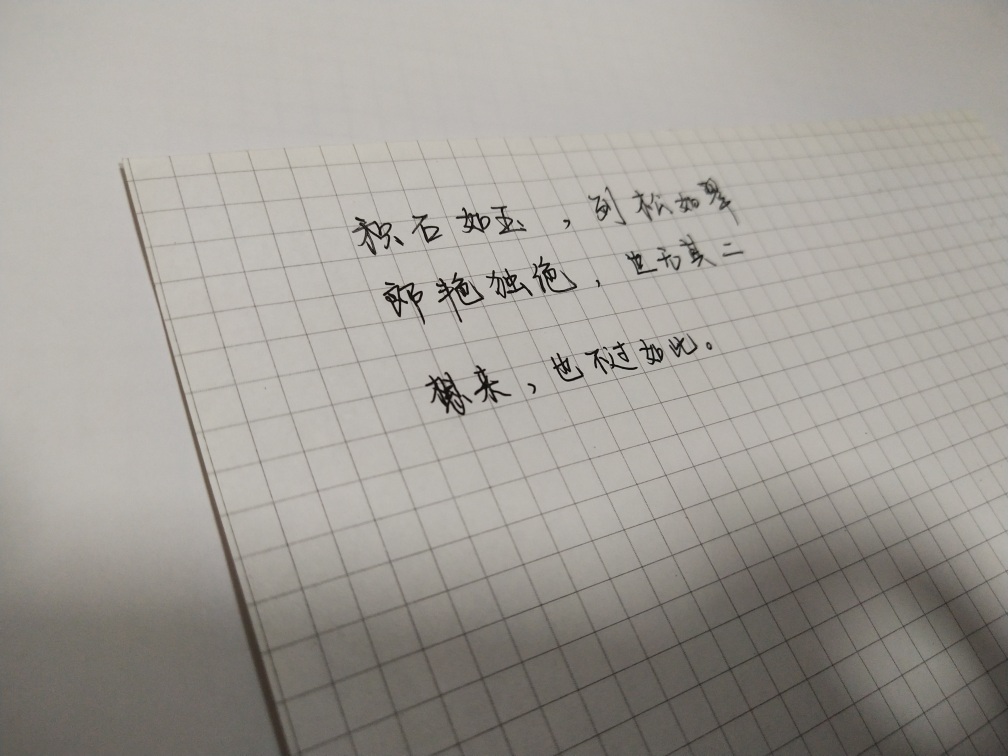 积石如玉，列松如翠
郎艳独绝，世无其二
想来，也不过如此。